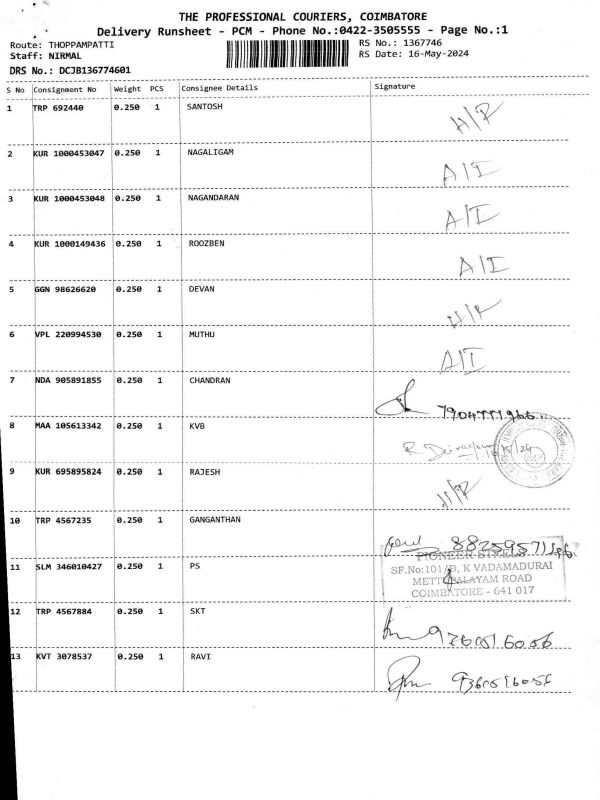 THE PROFESSIONAL COURIERS, COIMBATORE
Delivery Runsheet - PCM - Phone No.:0422-3505555 - Page No.:1
Route: THOPPAMPATTI
RS No.: 1367746
Staff: NIRMAL
RS Date: 16-May-2024
DRS No.: DCJB136774601
S No Consignment No Weight PCS Consignee Details Signature
1 TRP 692440 0.250 1 SANTOSH H/R
2 KUR 1000453047 0.250 1 NAGALIGAM A/I
3 KUR 1000453048 0.250 1 NAGANDARAN A/I
4 KUR 1000149436 0.250 1 ROOZBEN A/I
5 GGN 98626620 0.250 1 DEVAN H/R
6 VPL 220994530 0.250 1 MUTHU A/I
7 NDA 905891855 0.250 1 CHANDRAN
8 MAA 105613342 0.250 1 KVB
9 KUR 695895824 0.250 1 RAJESH H/R
10 TRP 4567235 0.250 1 GANGANTHAN
PIONEER
11 SLM 346010427 0.250 1 PS SF.No:101/B, K VADAMADURAI
METTUPALAYAM ROAD
COIMBATORE - 641 017
12 TRP 4567884 0.250 1 SKT
13 KVT 3078537 0.250 1 RAVI